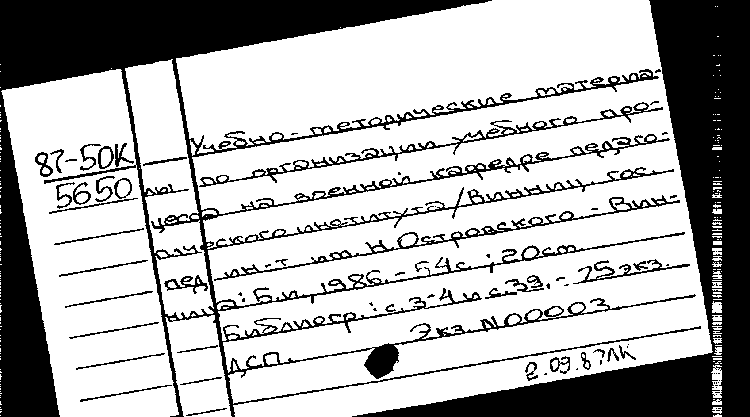 87-50К
5650
Учебно-методические материа-
лы по организации учебного про-
цесса на военной кафедре педаго-
гического института/Винниц. гос.
пед. ин-т им. Н.Островского - Вин-
ница: Б.и., 1986. - 54с.; 20см.
Библиогр.: с.3-4 и с.39. - 75экз.
ДСП. Экз. N00003.
2.09.87ЛК